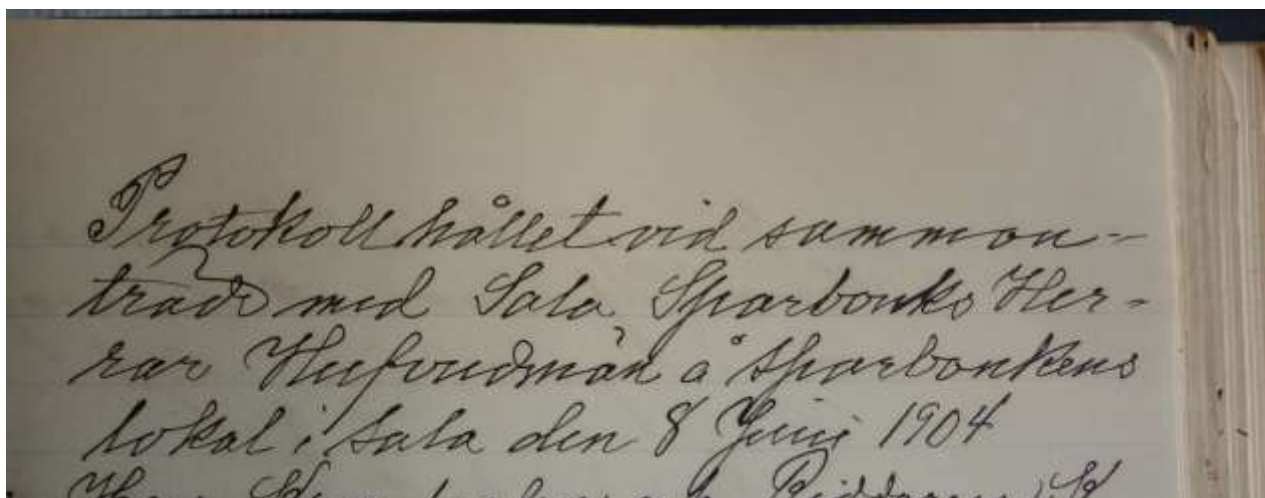 Protokoll hållet vid samman-
träde med Sala Sparbanks Her-
rar Hufvudmän å Sparbankens
lokal i Sala den 8 Juni 1904